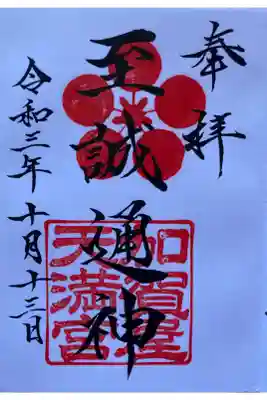 奉拝
至誠通神
加賀屋
天満宮
令和三年十月十三日